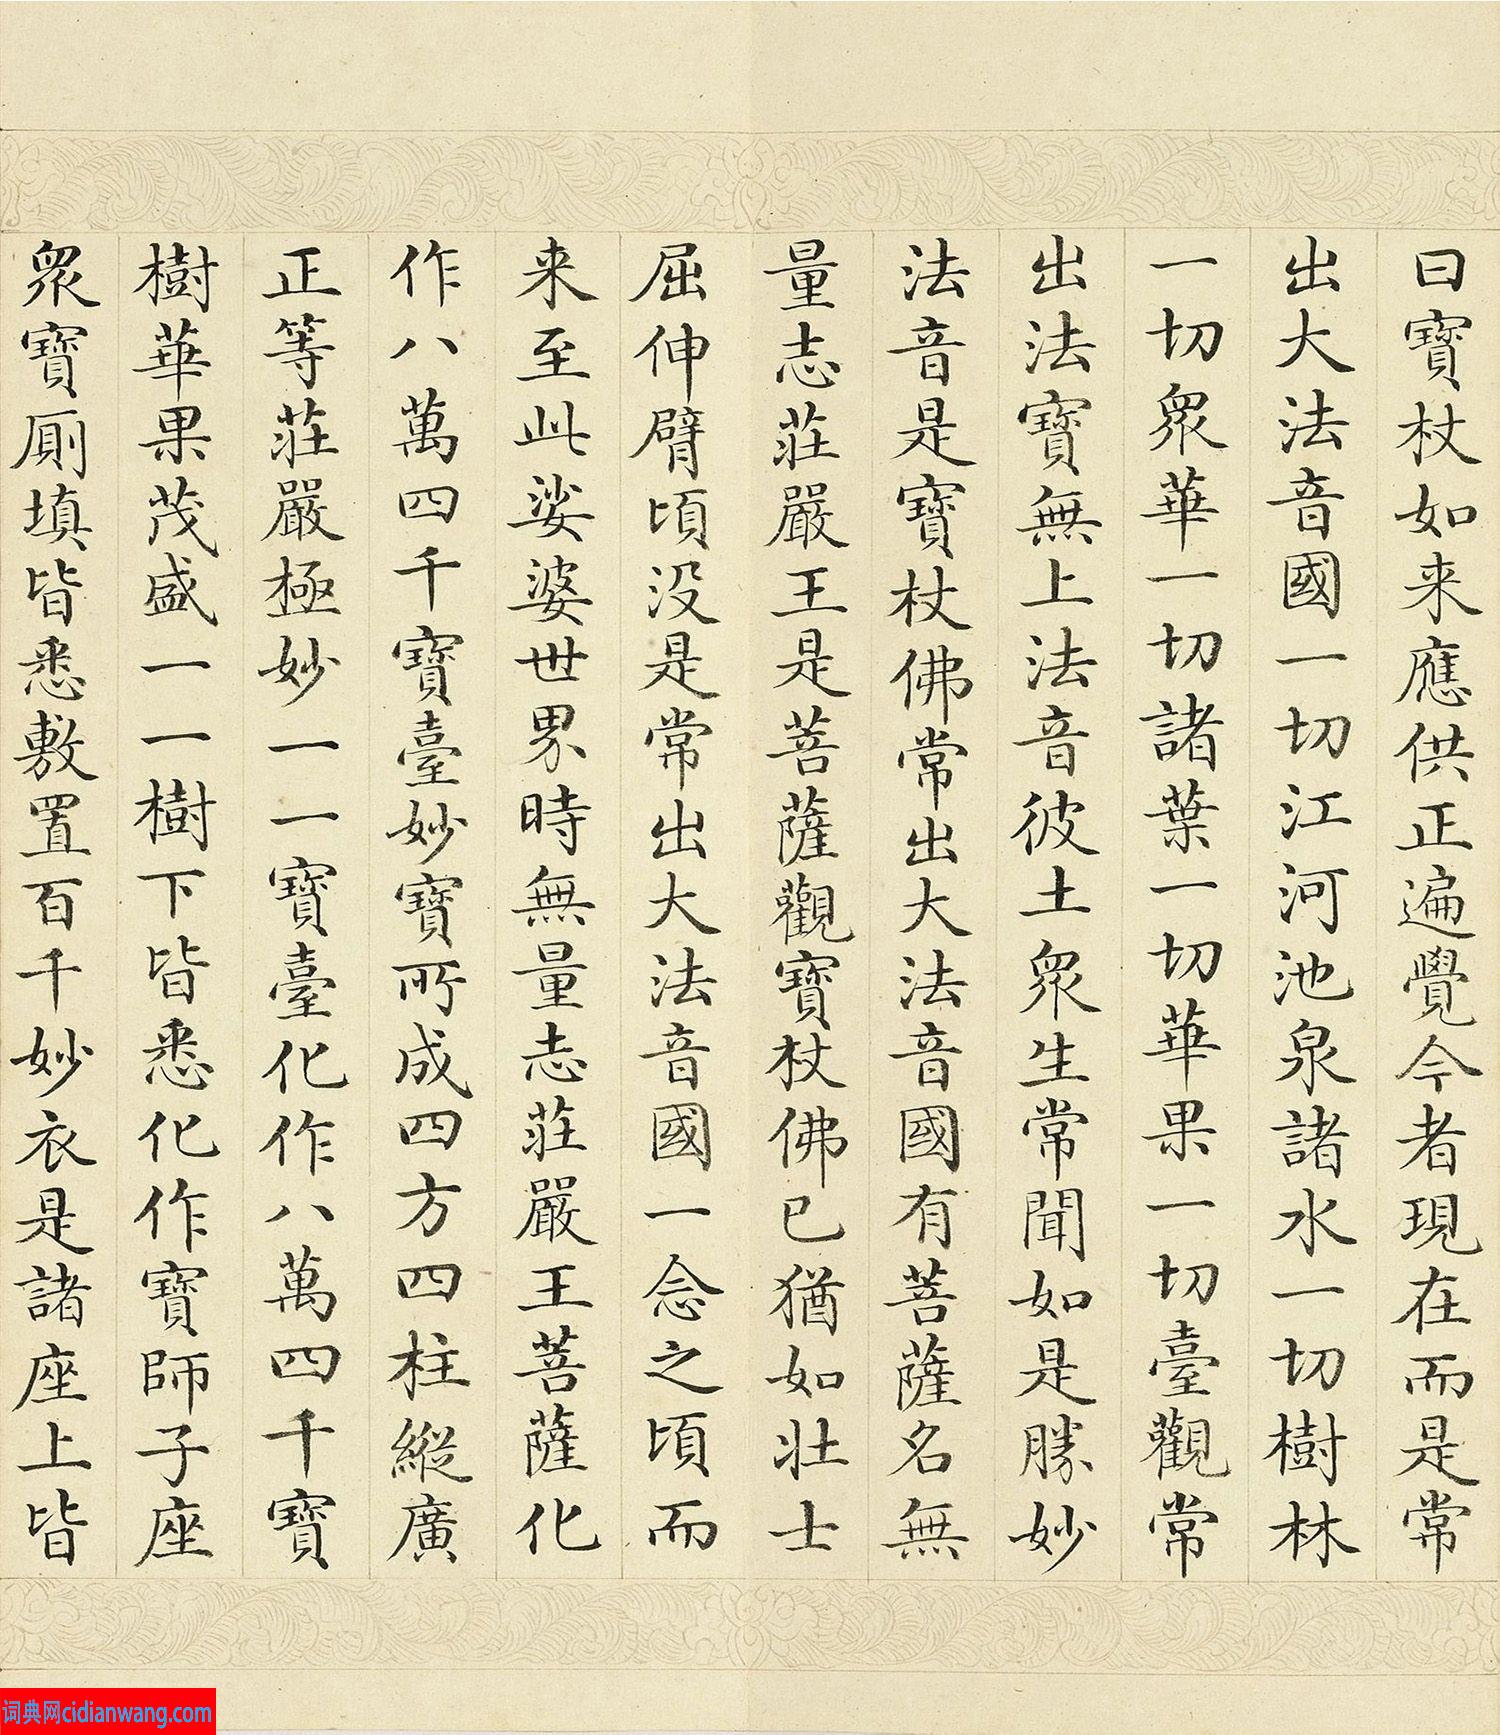 曰寶杖如来應供正遍覺今者現在而是常
出大法音國一切江河池泉諸水一切樹林
一切衆華一切諸葉一切華果一切臺觀常
出法寶無上法音彼土衆生常聞如是勝妙
法音是寶杖佛常出大法音國有菩薩名無
量志莊嚴王是菩薩觀寶杖佛已猶如壯士
屈伸臂頃没是常出大法音國一念之頃而
来至此娑婆世界時無量志莊嚴王菩薩化
作八萬四千寶臺妙寶所成四方四柱縱廣
正等莊嚴極妙一一寶臺化作八萬四千寶
樹華果茂盛一一樹下皆悉化作寶師子座
衆寶厠填皆悉敷置百千妙衣是諸座上皆
词典网cidianwang.com